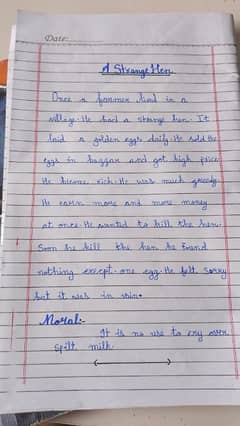 Date:
A Strange Hen
Once a farmer lived in a
village. He had a strange hen. It
laid a golden eggs daily. He sold the
eggs in bazzar and got high price
He become rich. He was much greedy
He earn more and more money
at once. He wanted to kill the hen.
Soon he kill the hen he found
nothing except one egg. He felt sorry
but it was in vain.
Moral:-
It is no use to cry over
spilt milk.